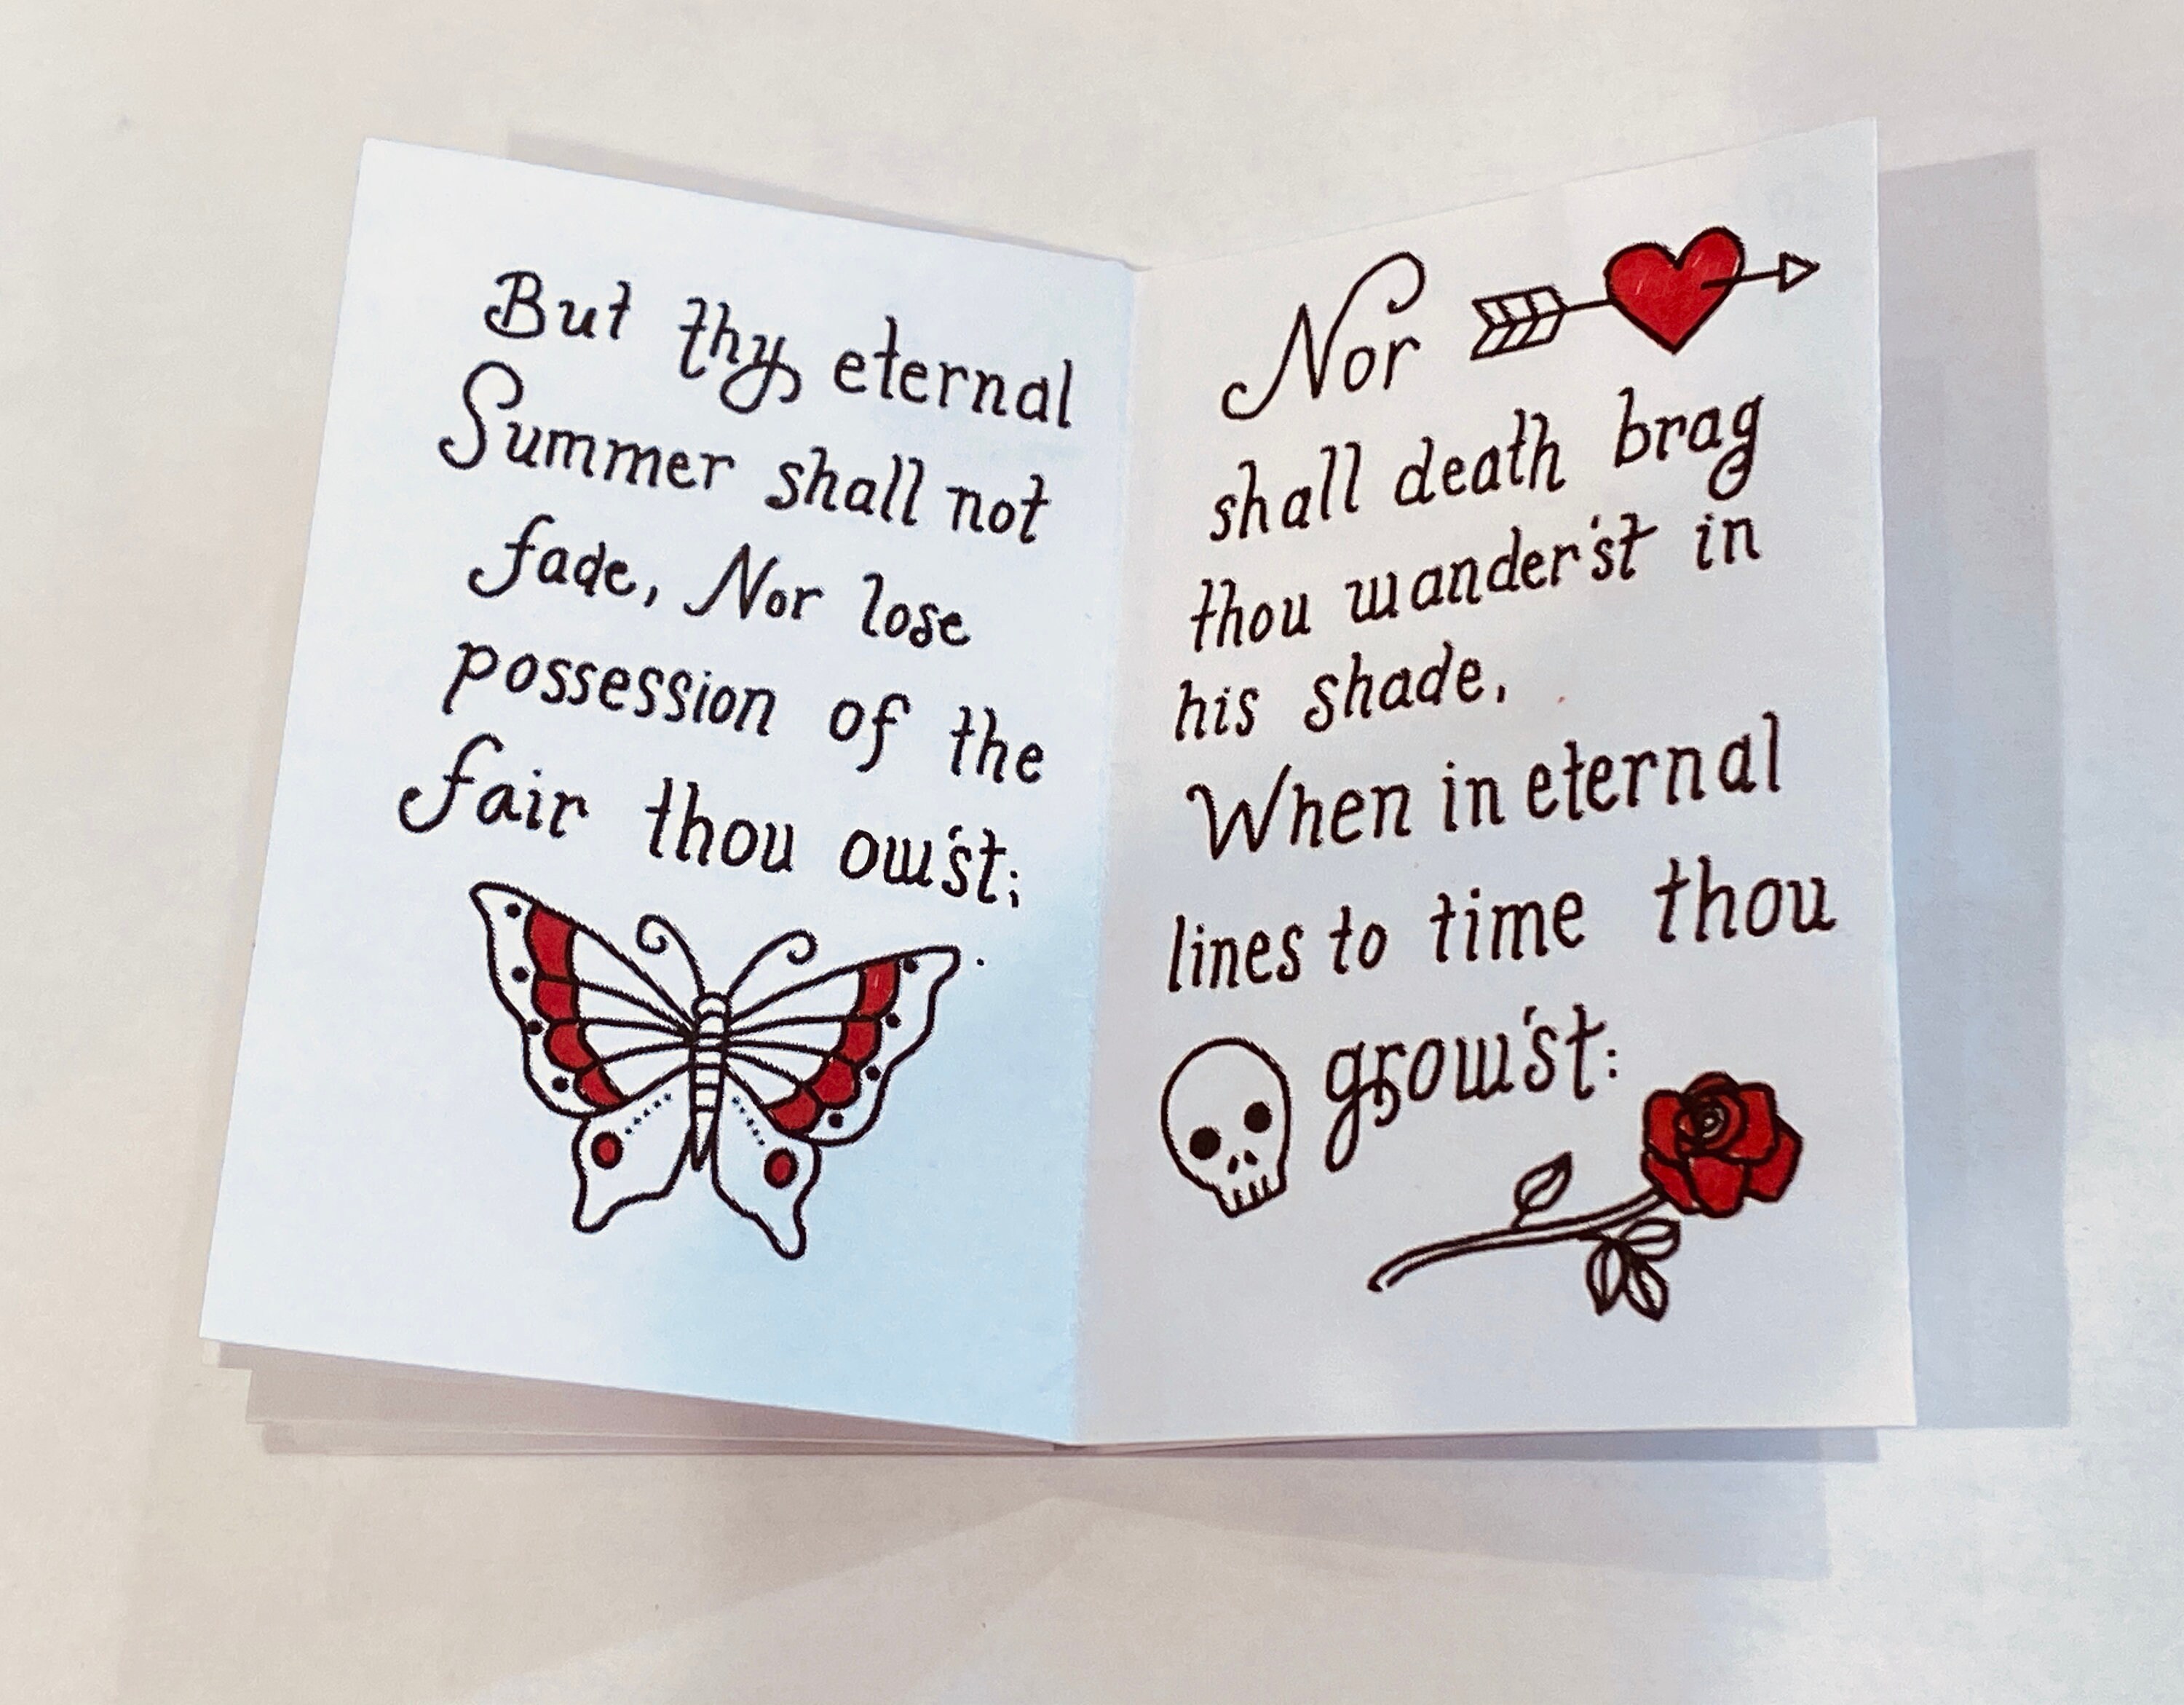 But thy eternal
Summer shall not
fade, Nor lose
possession of the
fair thou ow'st;
Nor
shall death brag
thou wander'st in
his shade,
When in eternal
lines to time thou
grow'st: